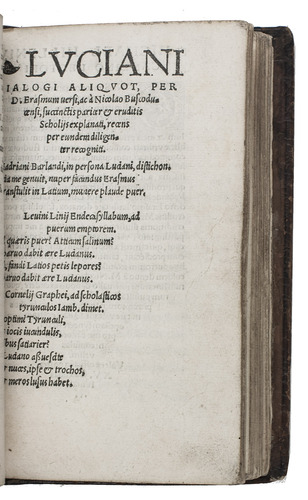 LVCIANI
IALOGI ALIQVOT, PER
D. Erasmum uersi, ac à Nicolao Buscodu-
censi, succinctis pariter & eruditis
Scholijs explanati, recens
per eundem diligen-
ter recogniti.
adriani Barlandi, in persona Luciani, distichon.
me genuit, nuper facundus Erasmus
ranstulit in Latium, munere plaude puer.
Leuini Linij Endecasyllabum, ad
puerum emptorem.
quæris puer? Atticum salinum?
paruo dabit ære Lucianus.
fundi Latios petis lepores?
paruo dabit ære Lucianus.
Cornelij Graphei, ad scholasticos
tyrunculos Iamb. dimet.
optimi Tyrunculi,
iocis iucundulis,
bus satiarier?
Luciano assuescite
nuces, ipse & trochos,
meros lusus habet.